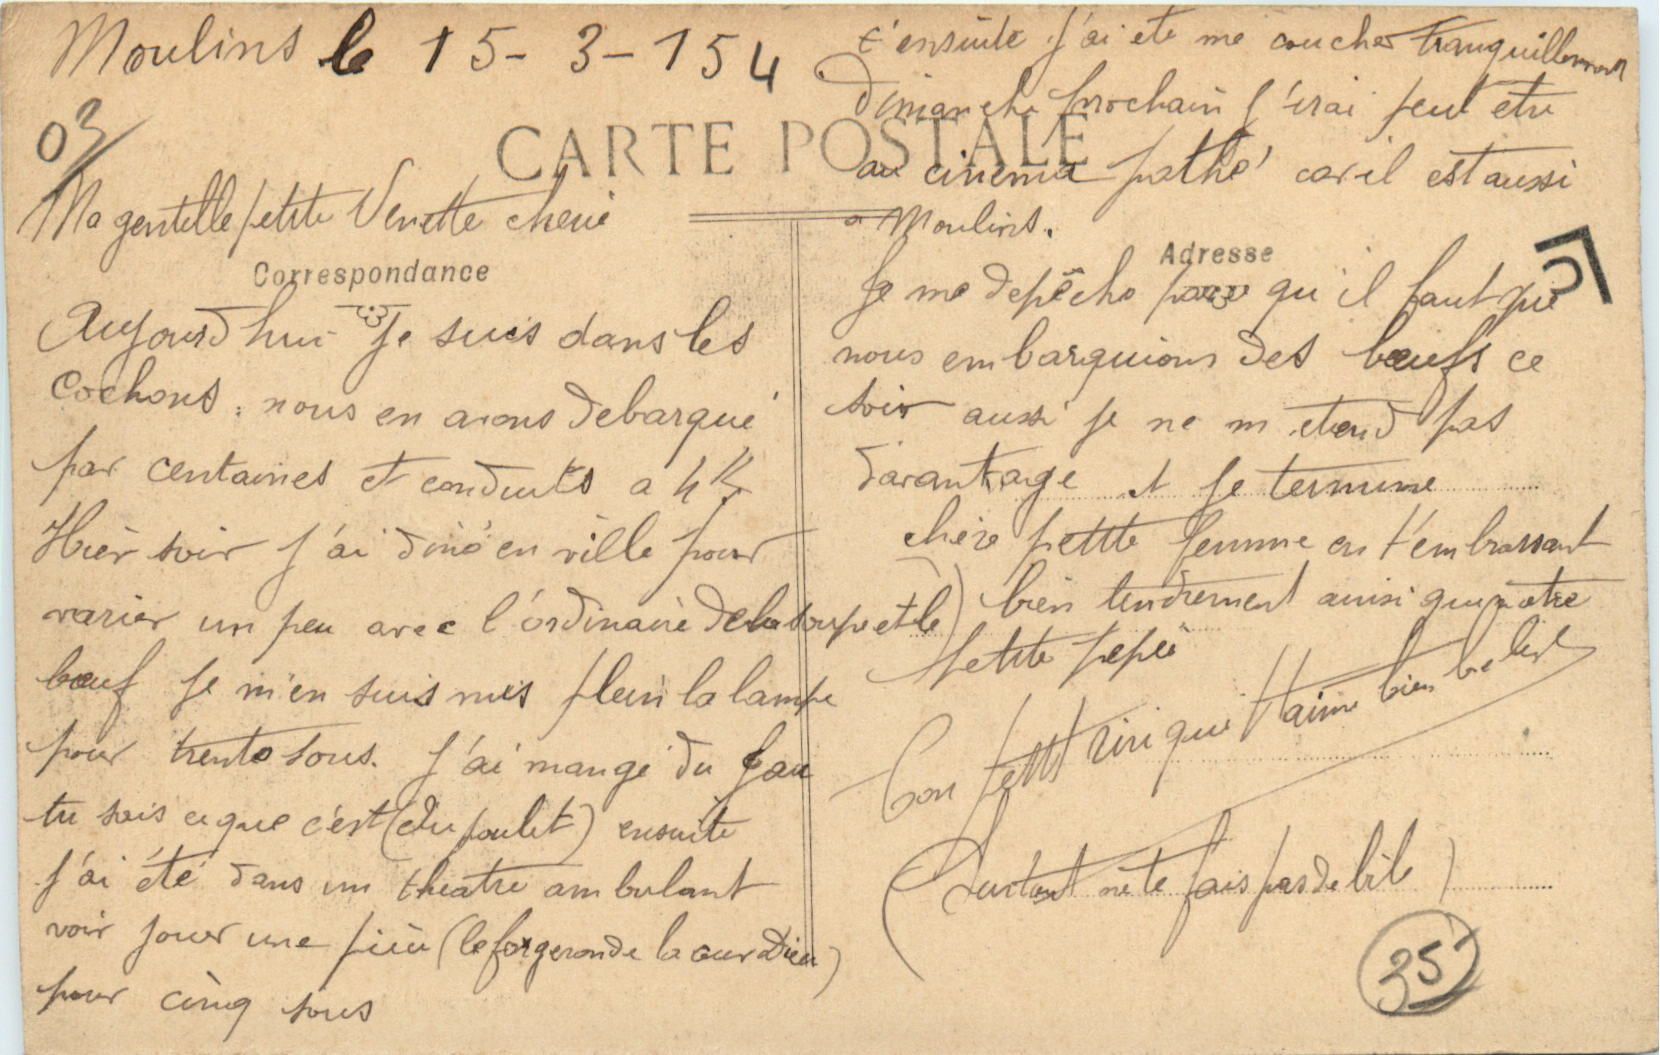 Moulins le 15-3-154
03
CARTE POSTALE
Ma gentille petite Venette cherie
Correspondance
Aujourd hui je suis dans les
Cochons, nous en avons debarqué
par centaines et conduits a 4 K
Hier soir j'ai diné en ville pour
varier un peu avec l'ordinaire de la soupe et le
bœuf je m'en suis mis plein la lampe
pour trente sous. j'ai mangé du
tu sais ce que c'est (du poulet) ensuite
j'ai été dans un theatre ambulant
voir jouer une piece (le forgeron de la cour Dieu)
pour cinq sous
t'ensuite j'ai ete me coucher tranquillement
Dimanche prochain j'irai peut etre
au cinema pathé car il est aussi
a Moulins.
Adresse
Je me depêche parce qu'il faut que
nous embarquions des bœufs ce
soir aussi je ne m etend pas
davantage et je termine
chère petite femme en t'embrassant
bien tendrement ainsi que notre
petite pepée
Ton petit riri qui t'aime bien
(Surtout ne te fais pas de bile)
35